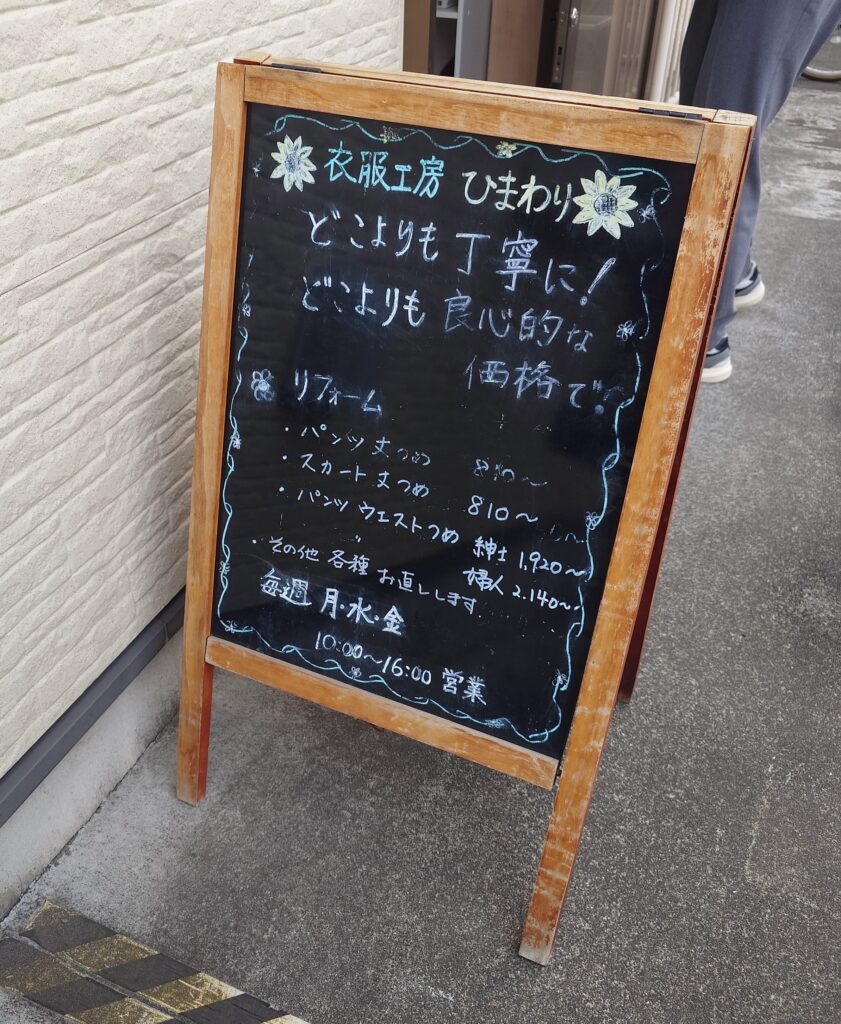 衣服工房 ひまわり
どこよりも 丁寧に!
どこよりも 良心的な
価格で!
リフォーム
・パンツ 丈つめ
・スカート 丈つめ 810〜
・パンツ ウエストつめ 紳士 1,920〜
〃 婦人 2.140〜
・その他 各種 お直しします
毎週 月・水・金
10:00〜16:00 営業